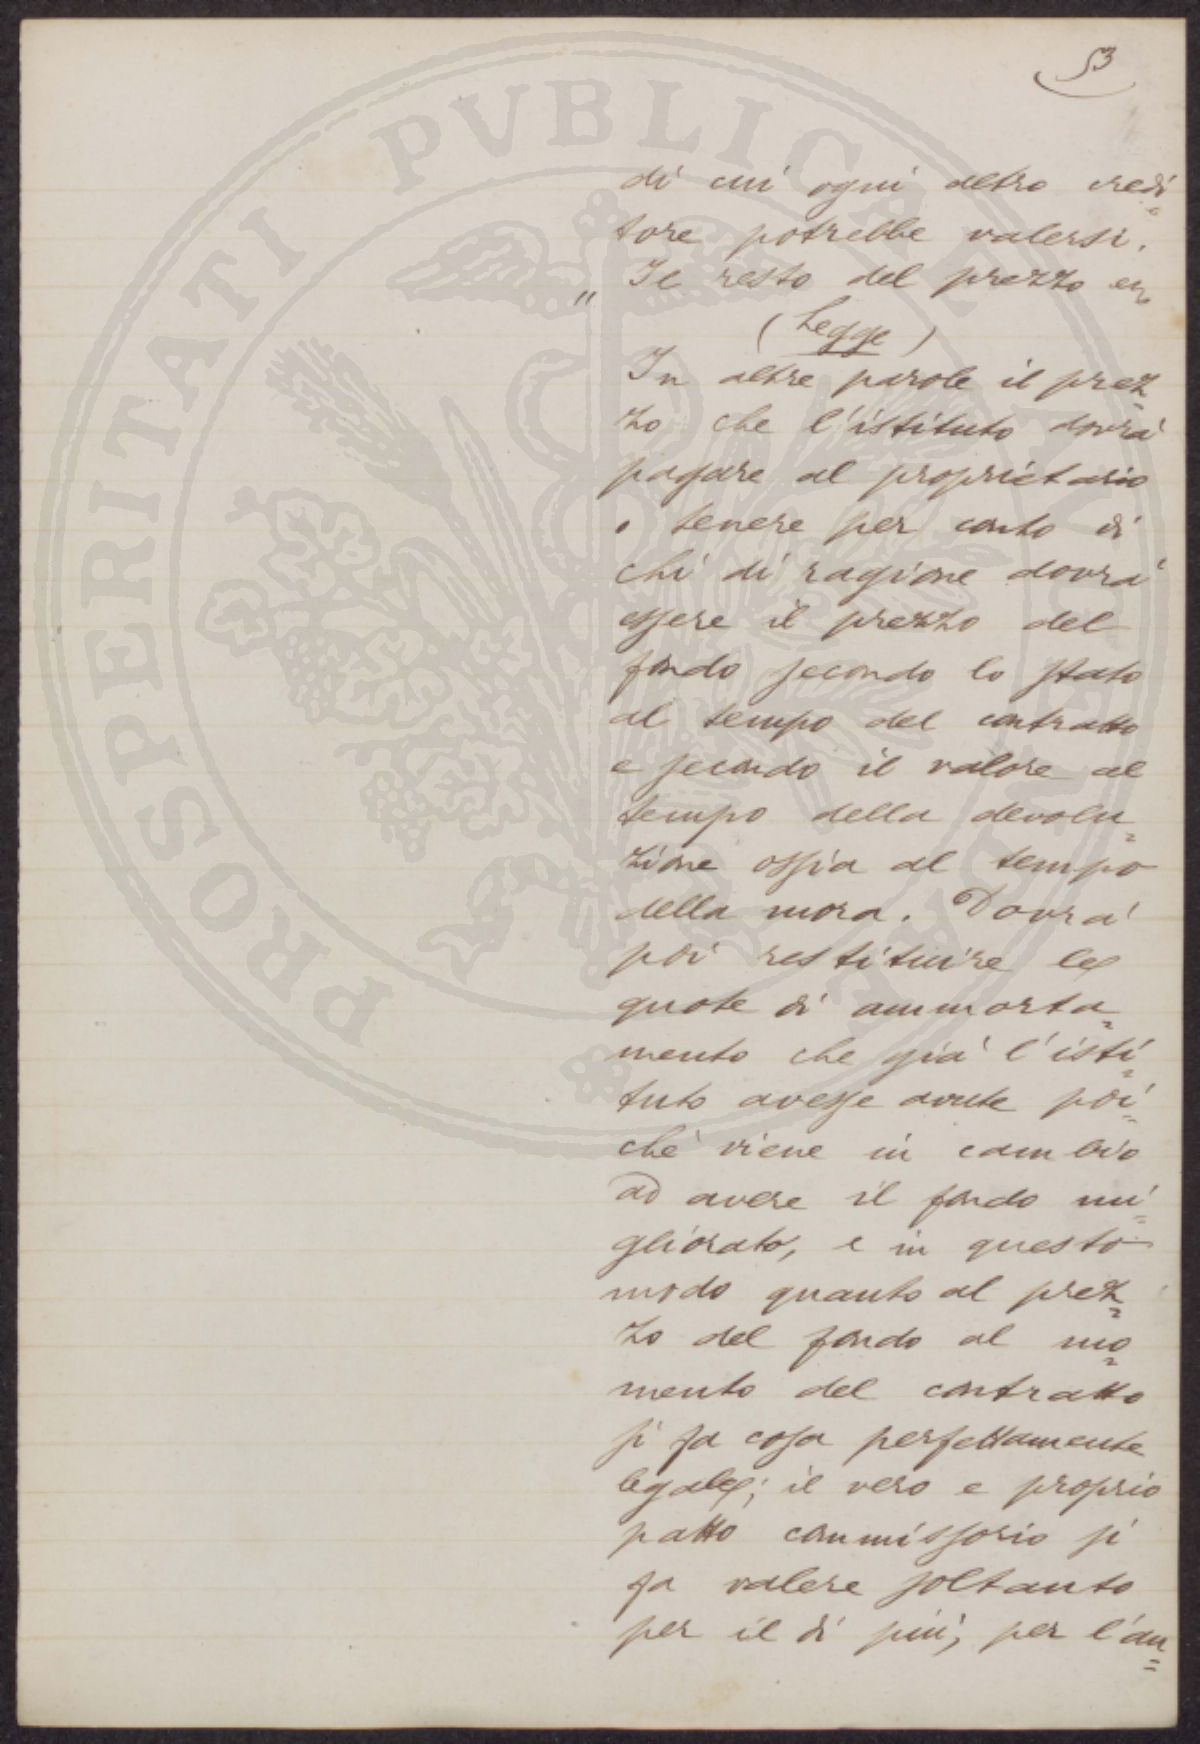 53
di cui ogni altro credi=
tore potrebbe valersi.
" Il resto del prezzo ecc
(Legge)
In altre parole il prez=
zo che l'istituto dovrà
pagare al proprietario
o tenere per conto di
chi di ragione dovrà
essere il prezzo del
fondo secondo lo stato
al tempo del contratto
e secondo il valore al
tempo della devolu=
zione ossia al tempo
della mora. Dovrà
poi restituire le
quote di ammorta=
mento che già l'isti=
tuto avesse avute poi=
chè viene in cambio
ad avere il fondo mi=
gliorato, e in questo
modo quanto al prez=
zo del fondo al mo=
mento del contratto
si fa cosa perfettamente
legale; il vero e proprio
patto commissorio si
fa valere soltanto
per il di più, per l'au=
PUBLICAE
PROSPERITATI